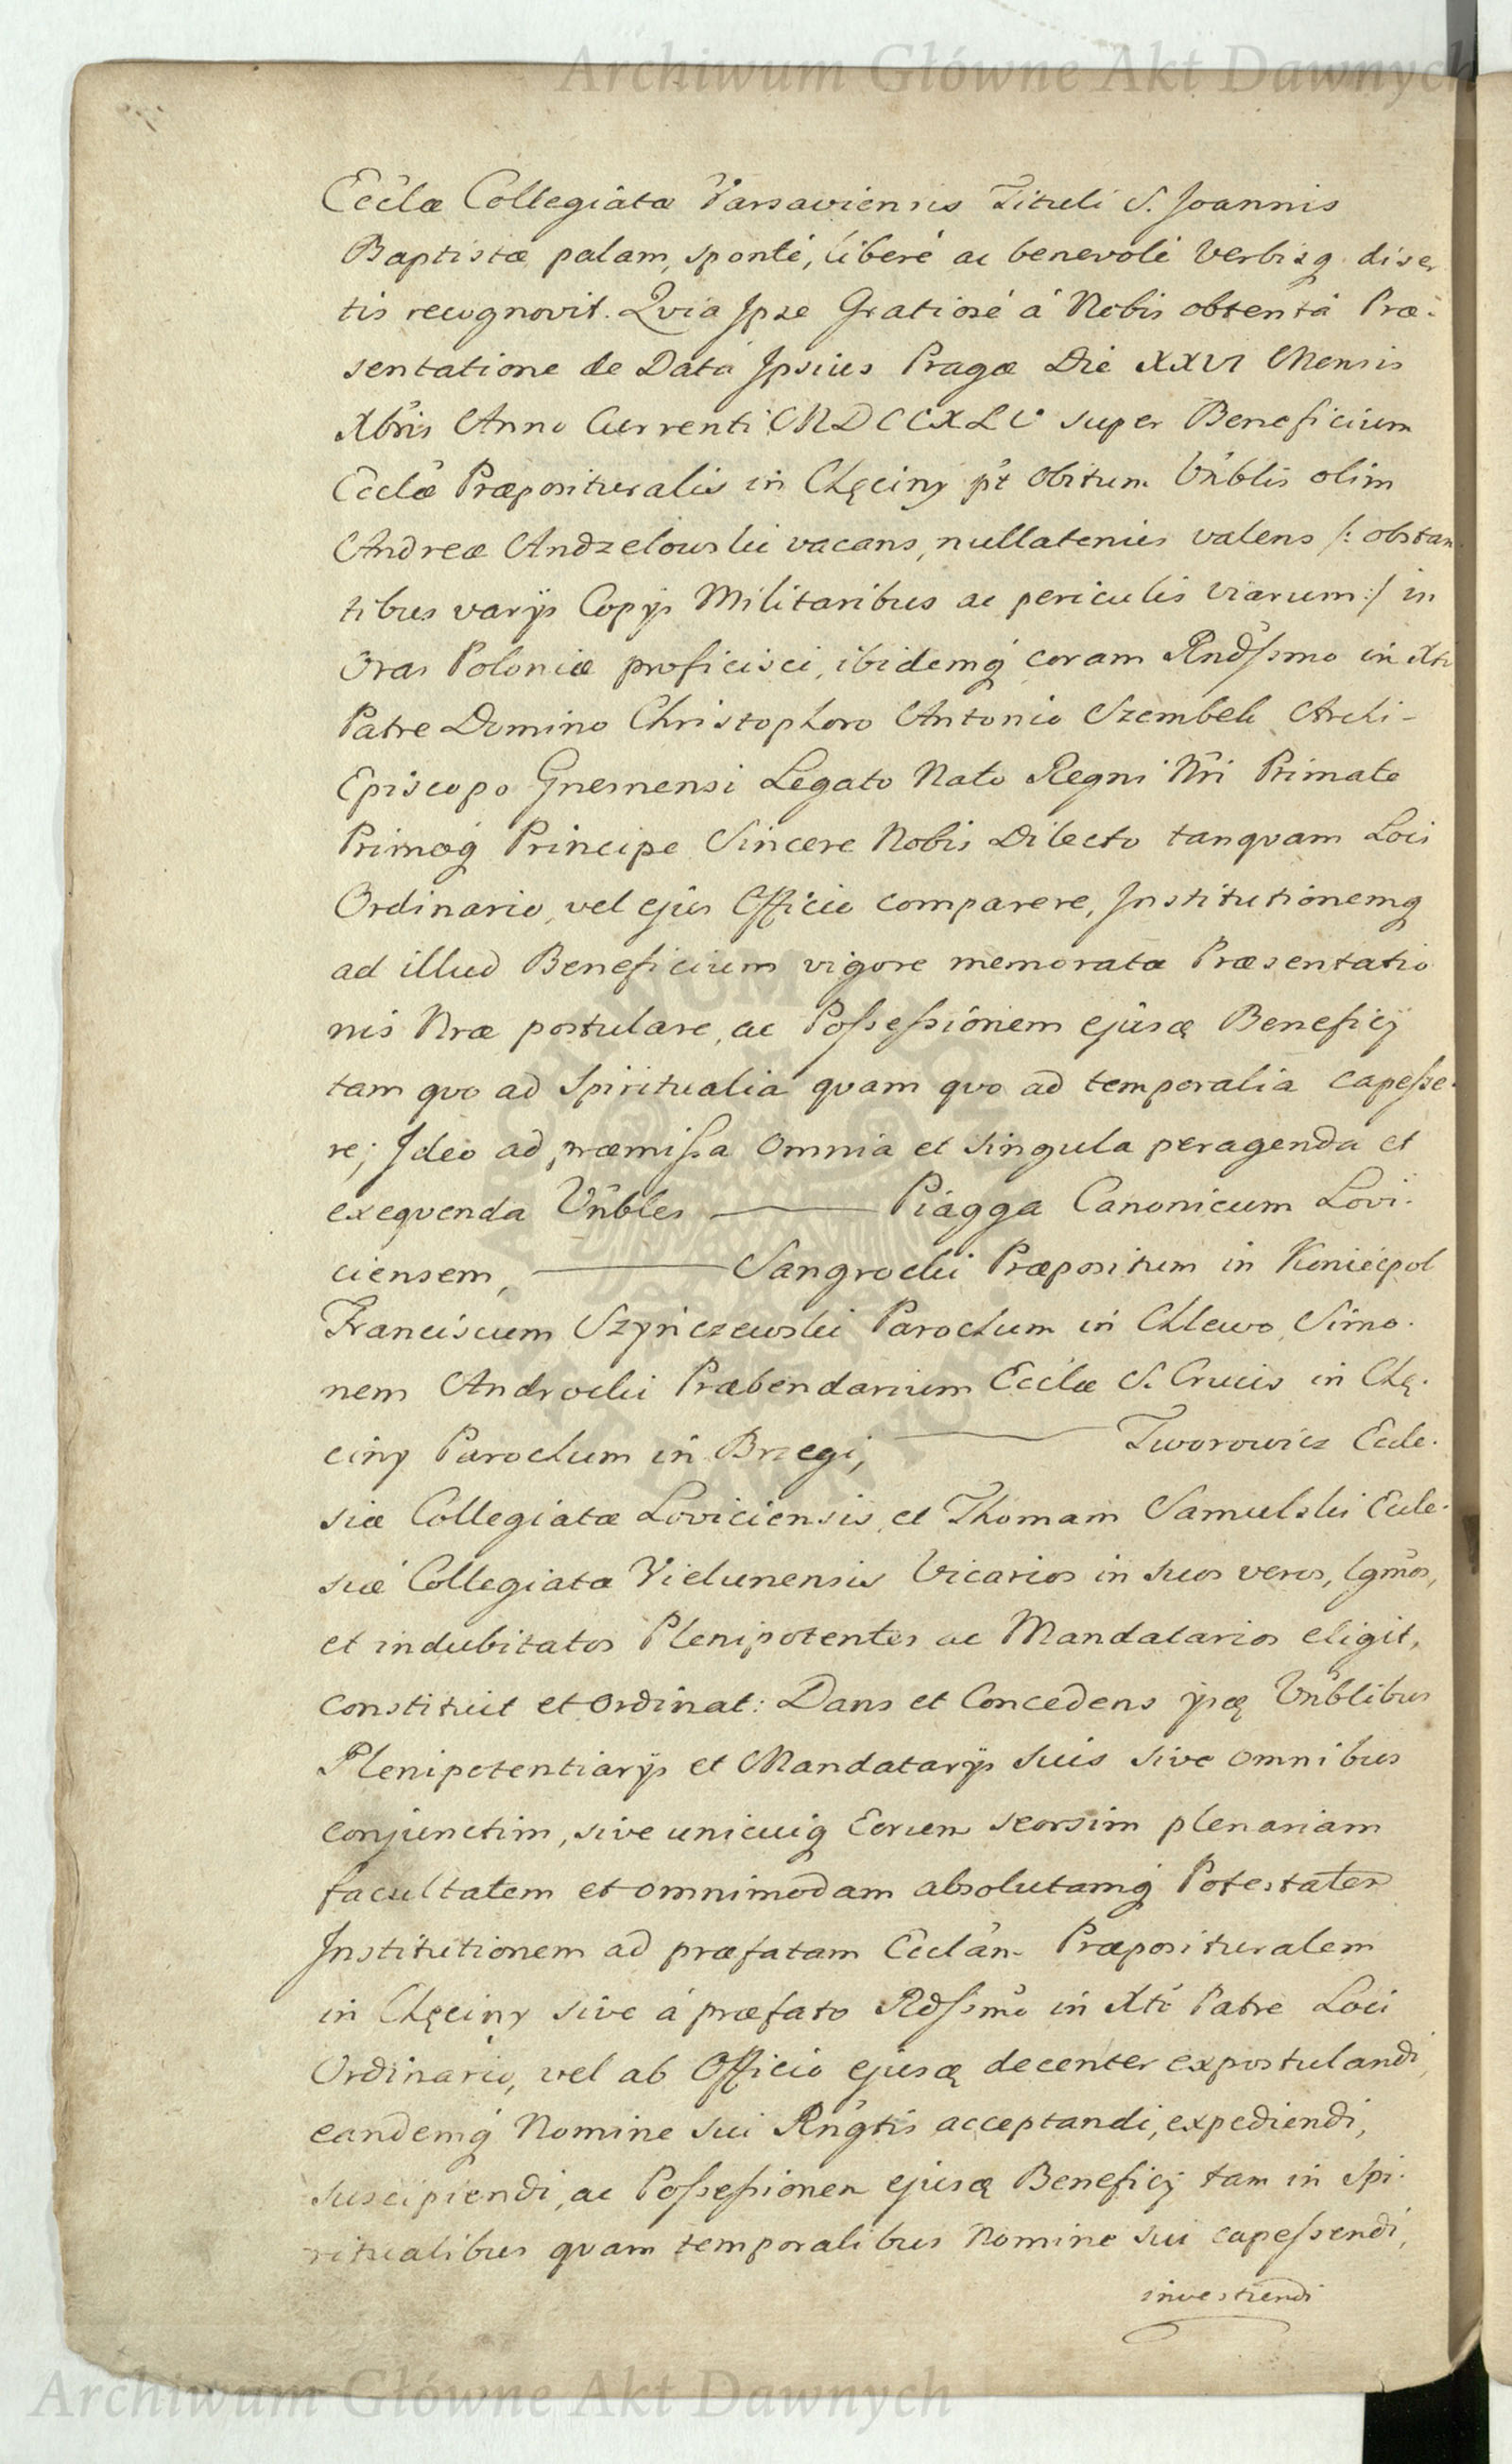 Archiwum Główne Akt Dawnych
Eccłæ Collegiatæ Varsaviensis Tituli S. Joannis
Baptistæ palam, sponté, liberé ac benevolé Verbisq diser
tis recognovit. Qvia Jpse Gratiosé á Nobis obtentá Præ-
sentatione de Data Jpsius Pragæ Die XXVI Mensis
Xbris Anno Currenti MDCCXLV super Beneficium
Ecclæ Præposituralis in Chęciny pt Obitum Vnblis olim
Andreæ Andzelowski vacans, nullatenus valens /: obstan
tibus varijs Copijs Militaribus ac periculis viarum :/ in
Oras Poloniæ proficisci, ibidemq coram Rndssmo in Xto
Patre Domino Christophoro Antonio Szembek Archi-
Episcopo Gnesnensi Legato Nato Regni Nri Primate
Primoq Principe Sincere Nobis Dilecto tanqvam Loci
Ordinario, vel ejus Officio comparere, Institutionemq
ad illud Beneficium vigore memoratæ Præsentatio
nis Nræ postulare, ac Possessionem ejusq Beneficij
tam qvo ad Spiritualia qvam qvo ad temporalia capesse-
re; Jdeo ad præmissa Omnia et singula peragenda et
exeqvenda Vnbles ——— Piagga Canonicum Lovi-
ciensem, ——— Sangrocki Præpositum in Koniecpol
Franciscum Szyńczewski Parochum in Chlewo, Simo-
nem Androcki Præbendarium Ecclæ S. Crucis in Chę-
ciny Parochum in Brzegi, ——— Tworowicz Eccle-
siæ Collegiatæ Loviciensis, et Thomam Samulski Eccle-
siæ Collegiatæ Vielunensis Vicarios in suos veros, lgmos,
et indubitatos Plenipotentes ac Mandatarios eligit,
constituit et Ordinat: Dans et Concedens ijsq Vnblibus
Plenipotentiarijs et Mandatarijs suis sive omnibus
conjunctim, sive unicuiq Eorum seorsim plenariam
facultatem et omnimodam absolutamq Potestatem
Institutionem ad præfatam Ecclam Præposituralem
in Chęciny sive á præfato Rdssmo in Xto Patre Loci
Ordinario, vel ab Officio ejusq decenter expostulandi,
eandemq Nomine sui Rngtis acceptandi, expediendi,
suscipiendi, ac Possessionem ejusq Beneficij tam in Spi-
ritualibus qvam temporalibus Nomine sui capessendi,
investiendi
Archiwum Główne Akt Dawnych